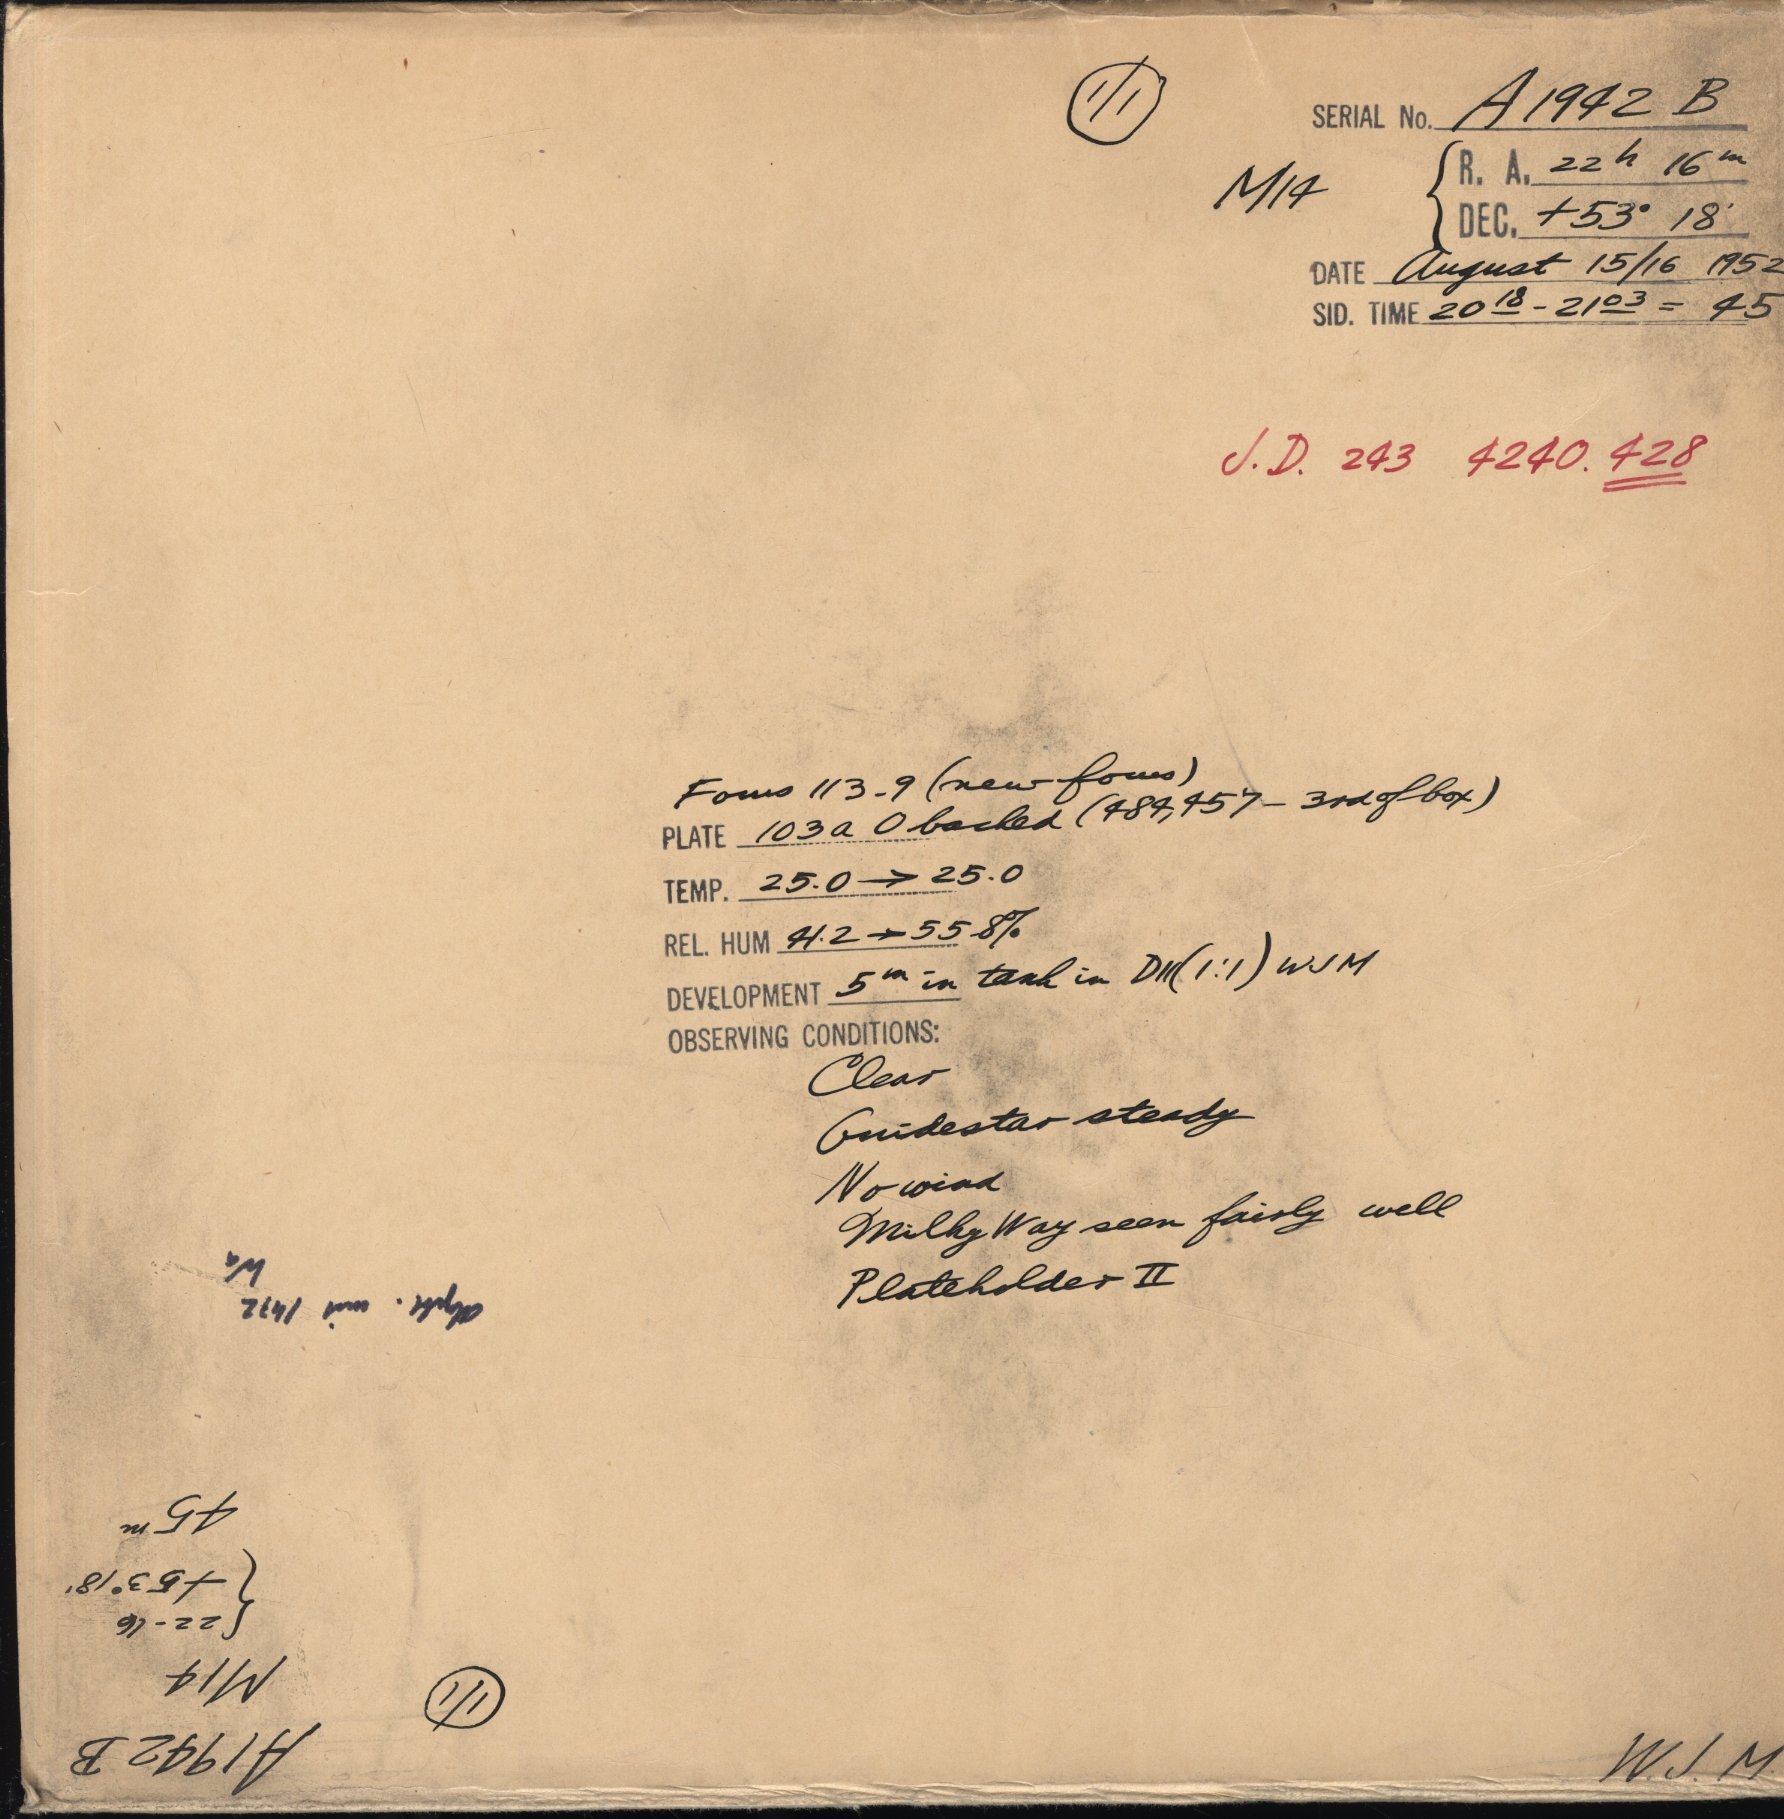 1/1
SERIAL No. A 1942 B
M14 { R. A. 22h 16m
DEC. +53° 18'
DATE August 15/16 1952
SID. TIME 20 18 - 21 03 = 45
J.D. 243 4240.428
Focus 113.9 (new focus)
PLATE 103a O backed (484,457 - 3rd of box)
TEMP. 25.0 → 25.0
REL. HUM 41.2 → 55.8%
DEVELOPMENT 5m in tank in D11 (1:1) WJM
OBSERVING CONDITIONS:
Clear
Guidestar steady
No wind
Milky Way seen fairly well
Plateholder II
mit 1472
Wa
45m
{ 22-16
+53° 18'
M14
A1942B
1/1
W.J.M.